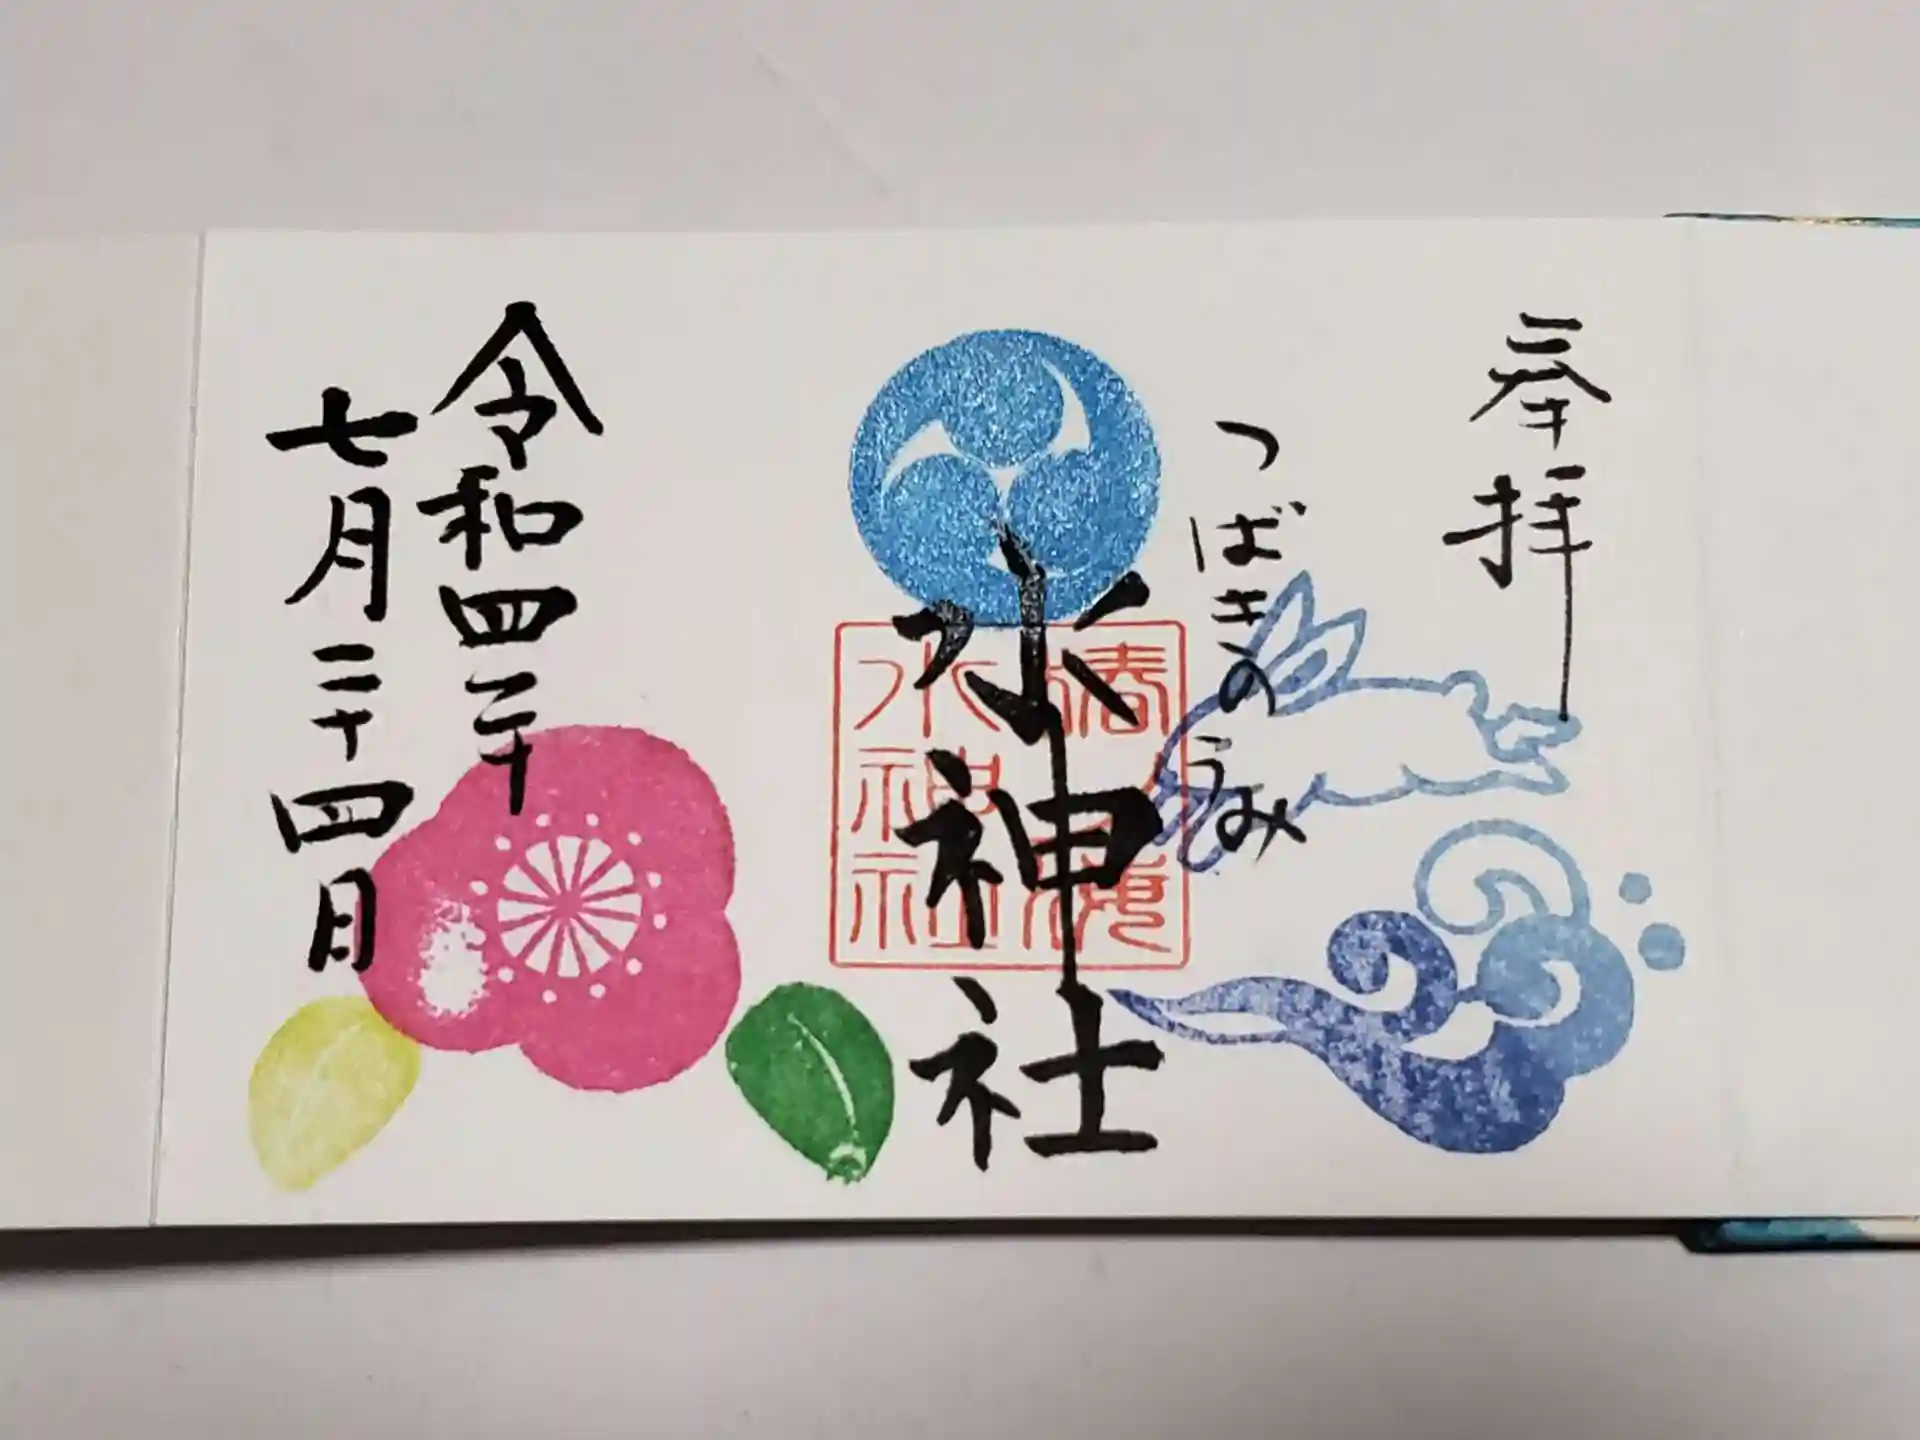 奉拝
つばきのうみ
水神社
椿ノ海
水神社
令和四年
七月二十四日